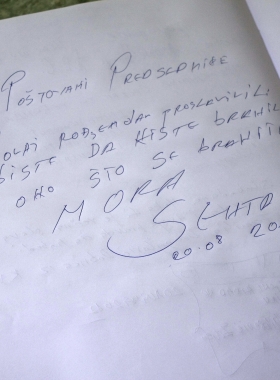 POŠTOVANI PREDSEDNIČE
ROĐENDAN PROSLAVILI
DA NISTE BRANILI
ONO ŠTO SE BRANITI
MORA
20.08